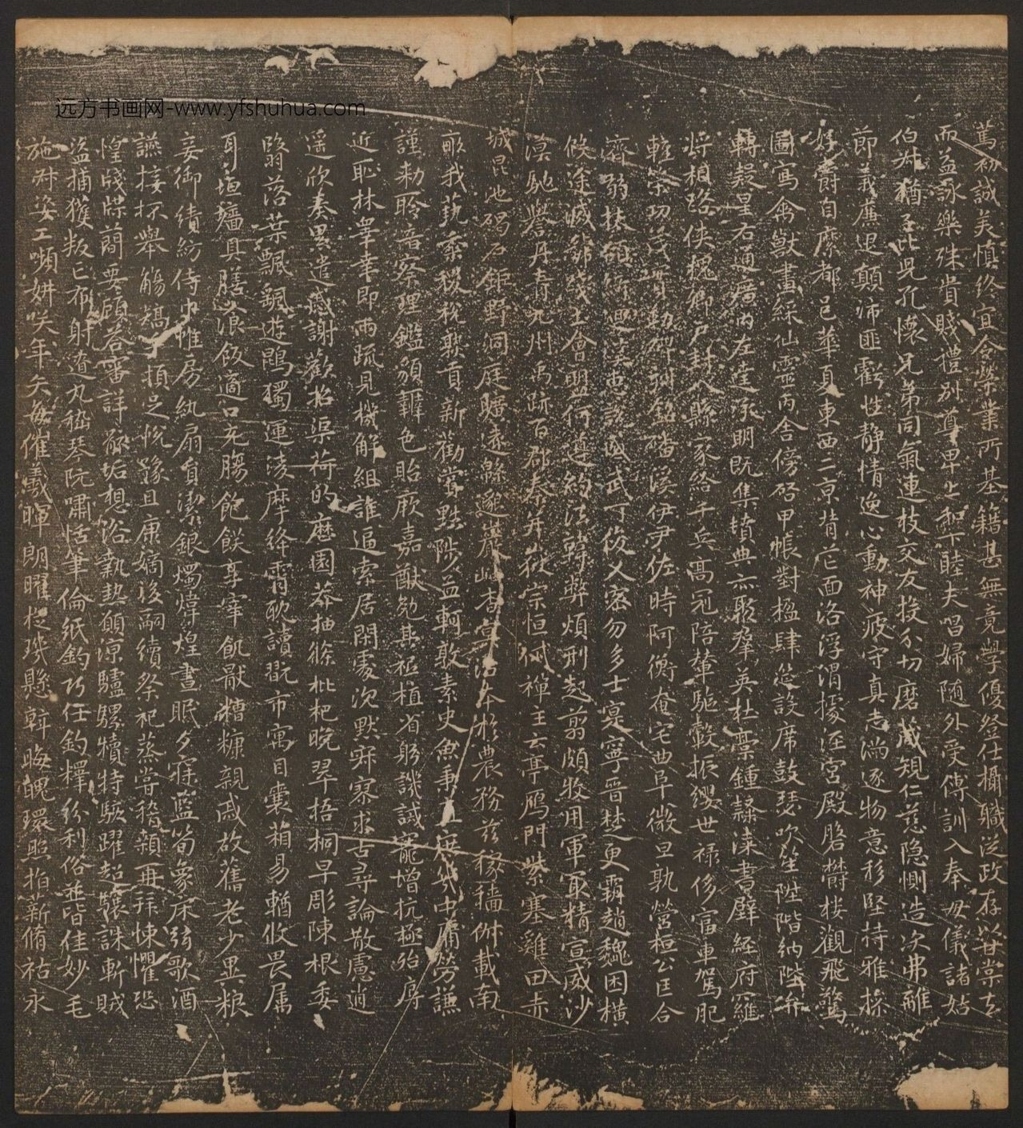 远方书画网-www.yfshuhua.com
篤初誠美慎終宜令榮業所基籍甚無竟學優登仕攝職從政存以甘棠去
而益詠樂殊貴賤禮別尊卑上和下睦夫唱婦隨外受傅訓入奉母儀諸姑
伯叔猶子比兒孔懷兄弟同氣連枝交友投分切磨箴規仁慈隱惻造次弗離
節義廉退顛沛匪虧性靜情逸心動神疲守真志滿逐物意移堅持雅操
好爵自縻都邑華夏東西二京背芒面洛浮渭據涇宮殿盤欝樓觀飛驚
圖寫禽獸畫綵仙靈丙舍傍啓甲帳對楹肆筵設席鼓瑟吹笙陞階納陛弁
轉疑星右通廣內左達承明既集墳典亦聚羣英杜稾鍾隸漆書壁經府羅
將相路俠槐卿戶封八縣家給千兵高冠陪輦驅轂振纓世祿侈富車駕肥
輕策功茂實勒碑刻銘磻溪伊尹佐時阿衡奄宅曲阜微旦孰營桓公匡合
濟弱扶傾綺迴漢惠說感武丁俊乂密勿多士寔寧晉楚更霸趙魏困橫
假途滅虢踐土會盟何遵約法韓弊煩刑起翦頗牧用軍最精宣威沙
漠馳譽丹青九州禹跡百郡秦并嶽宗恒岱禪主云亭鴈門紫塞雞田赤
城昆池碣石鉅野洞庭曠遠緜邈巖岫杳冥治本於農務茲稼穡俶載南
畝我藝黍稷稅熟貢新勸賞黜陟孟軻敦素史魚秉直庶幾中庸勞謙
謹勑聆音察理鑑貌辯色貽厥嘉猷勉其祗植省躬譏誡寵增抗極殆辱
近恥林皋幸即兩疏見機解組誰逼索居閑處沈默寂寥求古尋論散慮逍
遙欣奏累遣慼謝歡招渠荷的歷園莽抽條枇杷晚翠梧桐早彫陳根委
翳落葉飄颻遊鵾獨運淩摩絳霄耽讀翫市寓目囊箱易輶攸畏屬
耳垣牆具膳飡飯適口充腸飽飫享宰飢厭糟糠親戚故舊老少異粮
妾御績紡侍巾帷房紈扇員潔銀燭煒煌晝眠夕寐藍筍象床弦歌酒
讌接杯舉觴矯手頓足悅豫且康嫡後嗣續祭祀蒸嘗稽顙再拜悚懼恐
惶牋牒簡要顧答審詳骸垢想浴執熱願涼驢騾犢特駭躍超驤誅斬賊
盜捕獲叛亡布射遼丸嵇琴阮嘯恬筆倫紙鈞巧任釣釋紛利俗並皆佳妙毛
施淑姿工嚬妍笑年矢每催羲暉朗曜琁璣懸斡晦魄環照指薪脩祜永